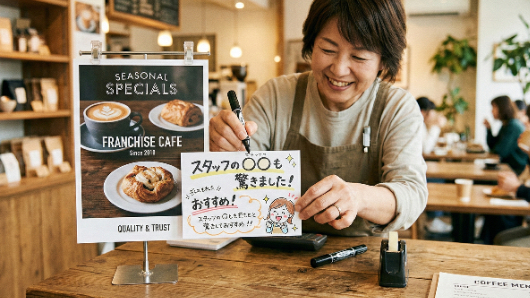 SEASONAL
SPECIALS
FRANCHISE CAFE
Since 2018
QUALITY & TRUST
スタッフの〇〇も
驚きました!
おすすめ!
スタッフの
COFFEE MEN